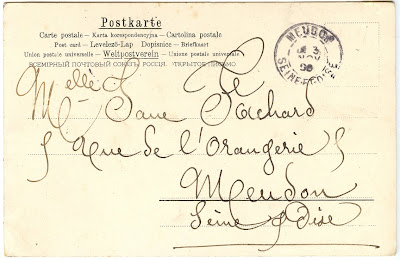 Postkarte
Carte postale — Karta korespondencyjna — Cartolina postale
Post card — Levelező-Lap — Dopisnice — Briefkaart
Union postale universelle — Weltpostverein — Unione postale universale
ВСЕМІРНЫЙ ПОЧТОВЫЙ СОЮЗЪ РОССІЯ. ОТКРЫТОЕ ПИСЬМО.
MEUDON
3
NOV
SEINE-ET-OISE
Melle
Jane
5 Rue de l'Orangerie 5
Meudon
Seine & Oise